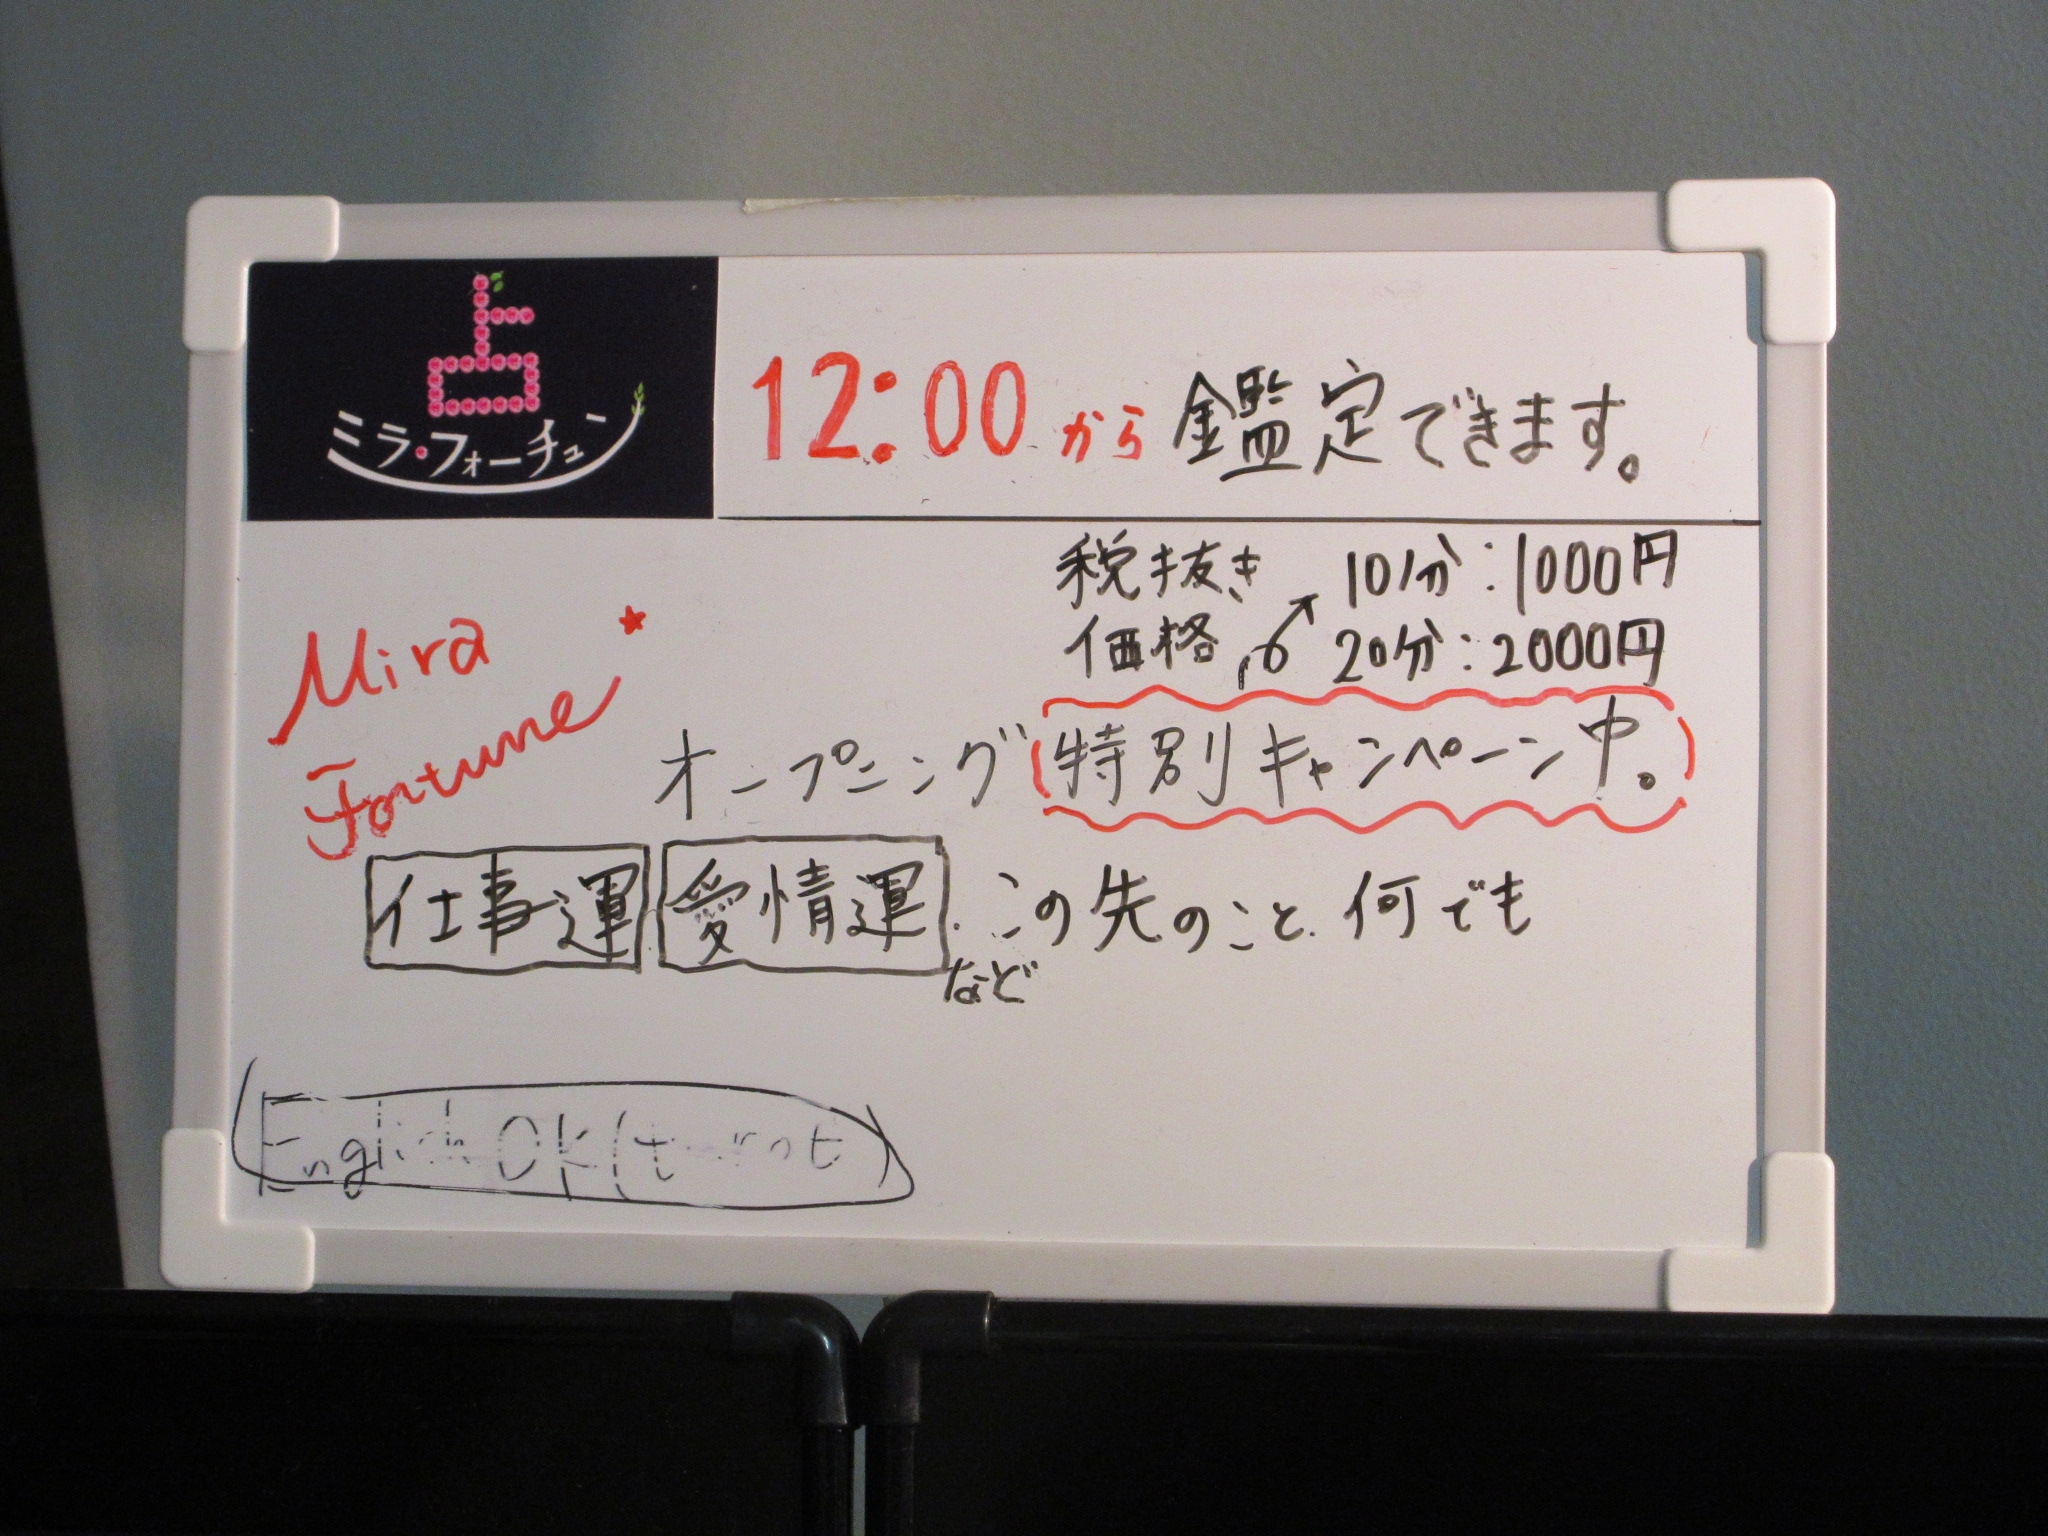 占
ミラ・フォーチュン
12:00から鑑定できます。
税抜き 10分:1000円
価格 20分:2000円
Mira
Fortune
オープニング特別キャンペーン中。
仕事運 愛情運 この先のこと 何でも
など
English OK (tarot)